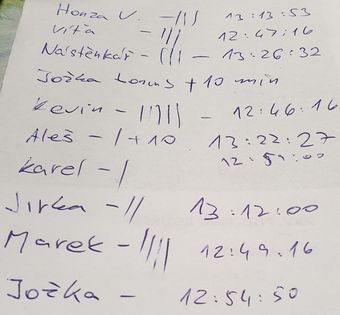 Honza V. - ||| 13:13:53
Víťa - ||| 12:47:16
Nástěnkář - ||| - 13:26:32
Jožka bonus + 10 min
Kevin - ||||| - 12:46:16
Aleš - | + 10 13:22:27
Karel - | 12:59:00
Jirka - || 13:12:00
Marek - |||| 12:49:16
Jožka - 12:54:50